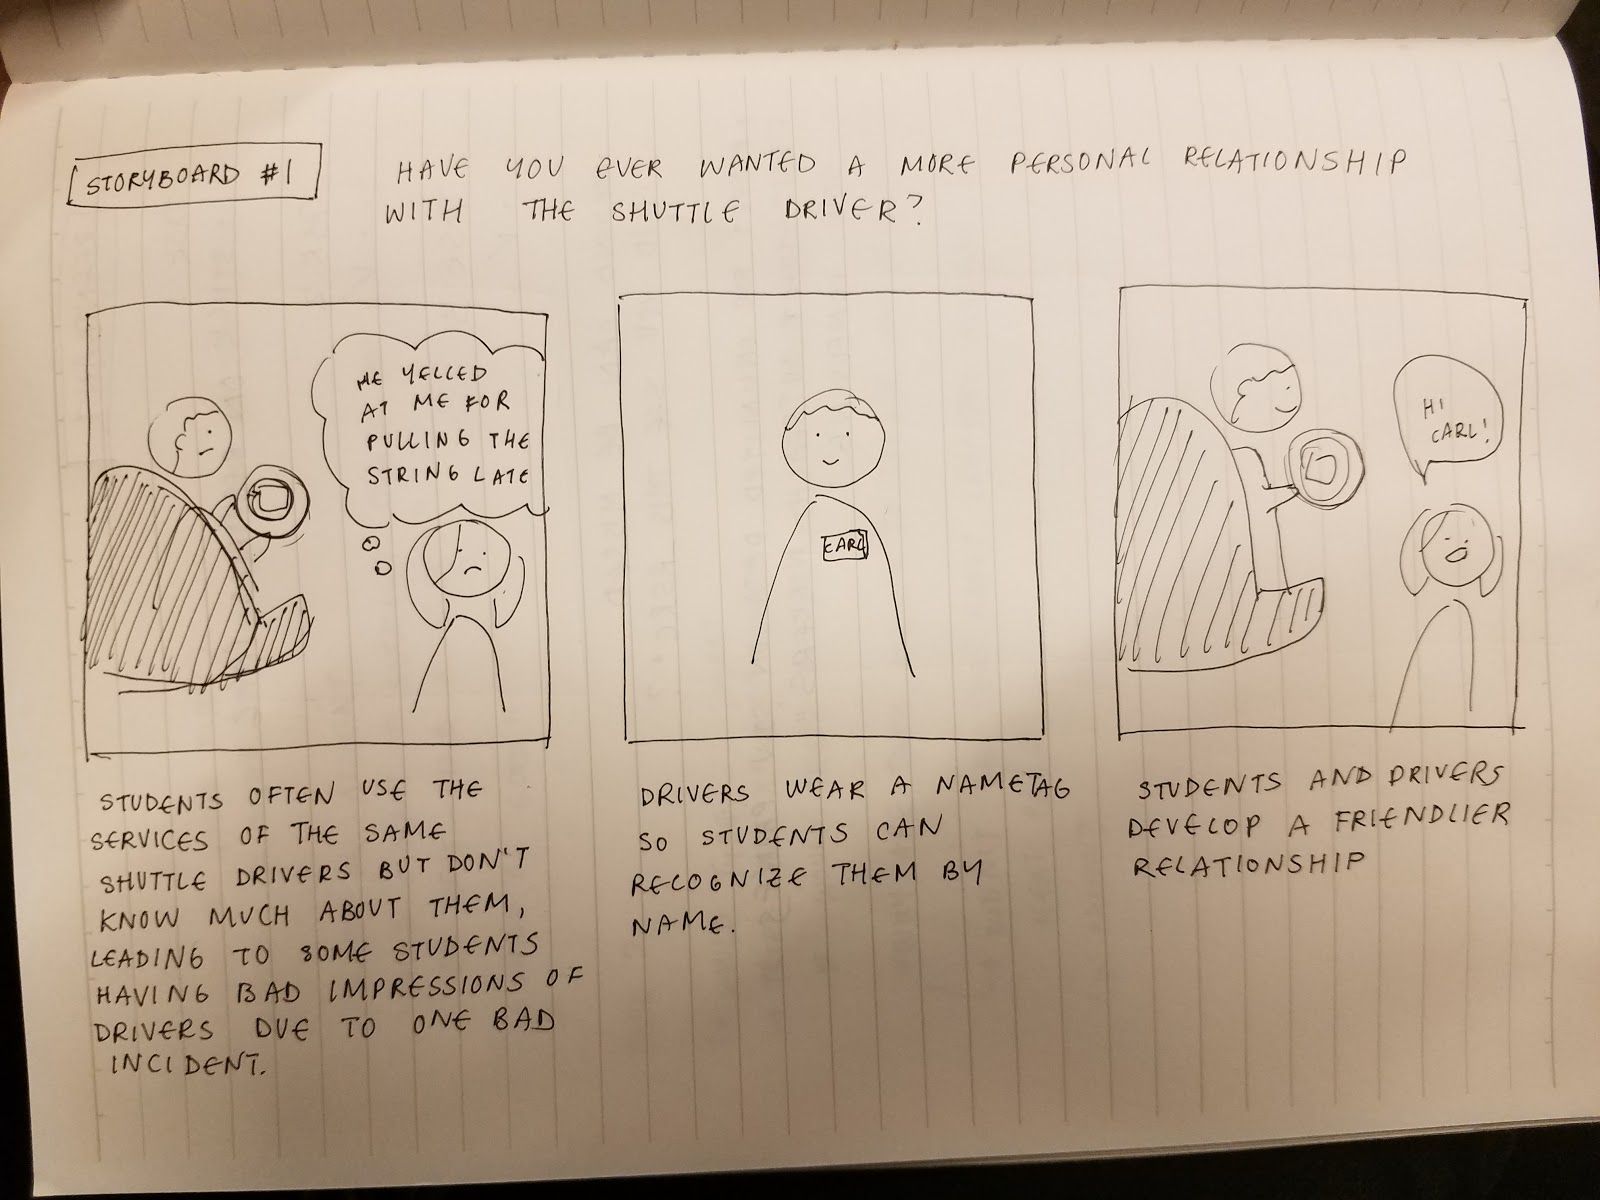 STORYBOARD #1
HAVE YOU EVER WANTED A MORE PERSONAL RELATIONSHIP
WITH THE SHUTTLE DRIVER?
HE YELLED
AT ME FOR
PULLING THE
STRING LATE
STUDENTS OFTEN USE THE
SERVICES OF THE SAME
SHUTTLE DRIVERS BUT DON'T
KNOW MUCH ABOUT THEM,
LEADING TO SOME STUDENTS
HAVING BAD IMPRESSIONS OF
DRIVERS DUE TO ONE BAD
INCIDENT.
CARL
DRIVERS WEAR A NAMETAG
SO STUDENTS CAN
RECOGNIZE THEM BY
NAME.
HI
CARL!
STUDENTS AND DRIVERS
DEVELOP A FRIENDLIER
RELATIONSHIP